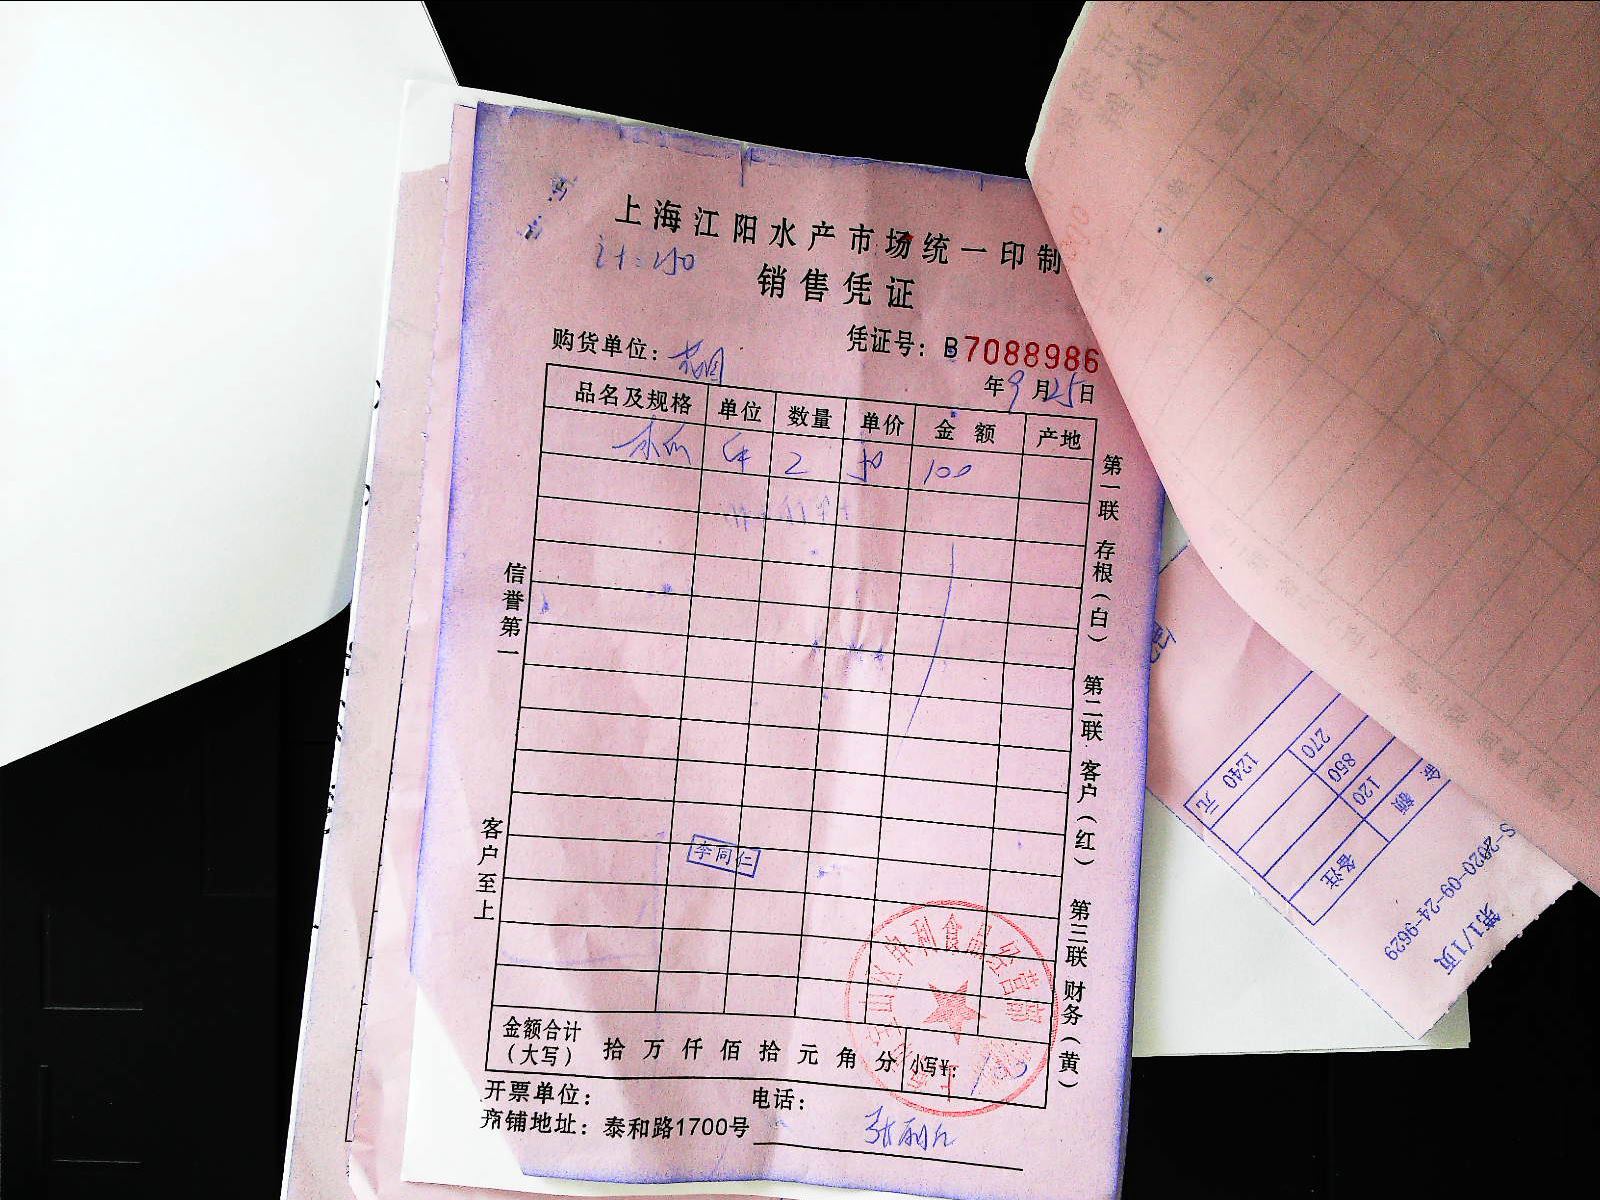 上海江阳水产市场统一印制
销售凭证
购货单位：
凭证号：B7088986
年9月25日
品名及规格 单位 数量 单价 金额 产地
2 50 100
第一联 存根（白） 第二联 客户（红） 第三联 财务（黄）
信誉第一
客户至上
李同仁
金额合计（大写） 拾 万 仟 佰 拾 元 角 分 小写¥：100
开票单位： 电话：
商铺地址：泰和路1700号
金额 备注
120
850
270
1240 元
S-2020-09-24-9629
第1/1页